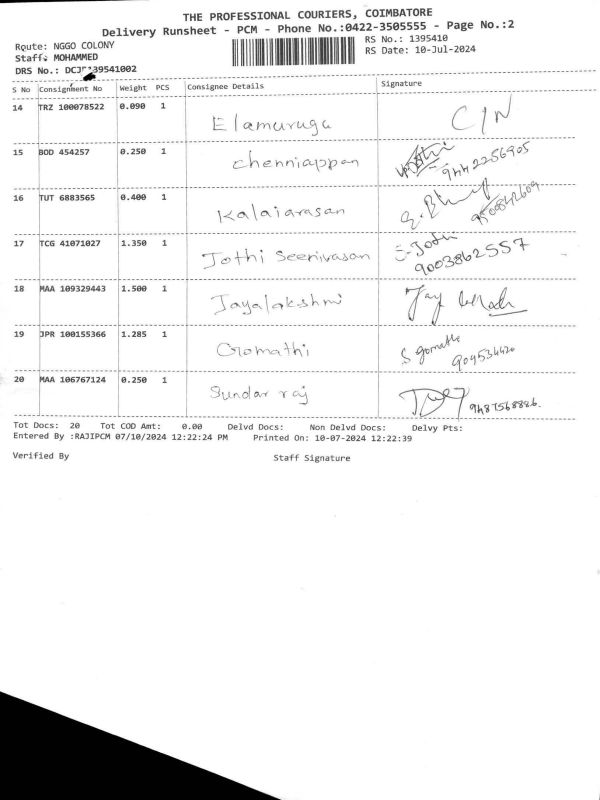 THE PROFESSIONAL COURIERS, COIMBATORE
Delivery Runsheet - PCM - Phone No.:0422-3505555 - Page No.:2
Route: NGGO COLONY RS No.: 1395410
Staff: MOHAMMED RS Date: 10-Jul-2024
DRS No.:
S No Consignment No Weight PCS Consignee Details Signature
14 TRZ 100078522 0.090 1 Elamuruga C/N
15 BOD 454257 0.250 1 chenniappan 9442256905
16 TUT 6883565 0.400 1 Kalaiarasan
17 TCG 41071027 1.350 1 Jothi Seenivasan S. Jothi 9003862557
18 MAA 109329443 1.500 1 Jayalakshmi
19 JPR 100155366 1.285 1 Gomathi S gomathi
20 MAA 106767124 0.250 1 Sundar raj 9487568886.
Tot Docs: 20 Tot COD Amt: 0.00 Delvd Docs: Non Delvd Docs: Delvy Pts:
Entered By :RAJIPCM 07/10/2024 12:22:24 PM Printed On: 10-07-2024 12:22:39
Verified By Staff Signature